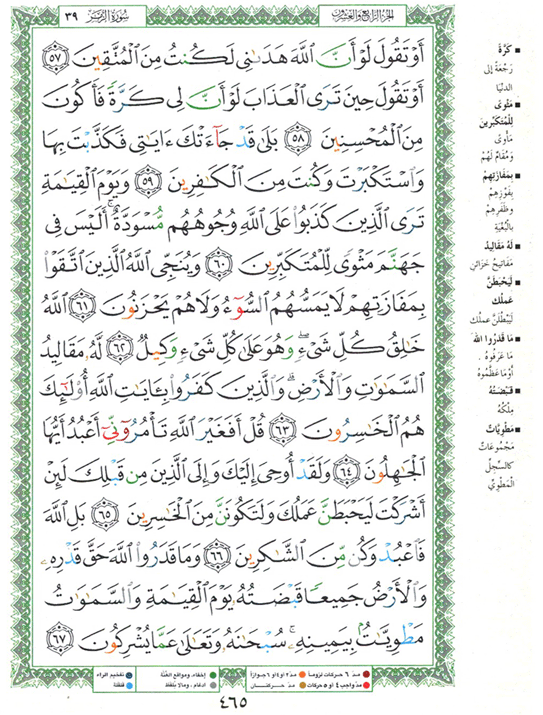 سورة الزمر ٣٩
الجزء الرابع والعشرون
أَوْ تَقُولَ لَوْ أَنَّ ٱللَّهَ هَدَىٰنِي لَكُنتُ مِنَ ٱلْمُتَّقِينَ ٥٧
أَوْ تَقُولَ حِينَ تَرَى ٱلْعَذَابَ لَوْ أَنَّ لِي كَرَّةً فَأَكُونَ
مِنَ ٱلْمُحْسِنِينَ ٥٨ بَلَىٰ قَدْ جَآءَتْكَ ءَايَٰتِي فَكَذَّبْتَ بِهَا
وَٱسْتَكْبَرْتَ وَكُنتَ مِنَ ٱلْكَٰفِرِينَ ٥٩ وَيَوْمَ ٱلْقِيَٰمَةِ
تَرَى ٱلَّذِينَ كَذَبُوا۟ عَلَى ٱللَّهِ وُجُوهُهُم مُّسْوَدَّةٌ ۚ أَلَيْسَ فِي
جَهَنَّمَ مَثْوًى لِّلْمُتَكَبِّرِينَ ٦٠ وَيُنَجِّي ٱللَّهُ ٱلَّذِينَ ٱتَّقَوْا۟
بِمَفَازَتِهِمْ لَا يَمَسُّهُمُ ٱلسُّوٓءُ وَلَا هُمْ يَحْزَنُونَ ٦١ ٱللَّهُ
خَٰلِقُ كُلِّ شَىْءٍ ۖ وَهُوَ عَلَىٰ كُلِّ شَىْءٍ وَكِيلٌ ٦٢ لَّهُۥ مَقَالِيدُ
ٱلسَّمَٰوَٰتِ وَٱلْأَرْضِ ۗ وَٱلَّذِينَ كَفَرُوا۟ بِـَٔايَٰتِ ٱللَّهِ أُو۟لَٰٓئِكَ
هُمُ ٱلْخَٰسِرُونَ ٦٣ قُلْ أَفَغَيْرَ ٱللَّهِ تَأْمُرُوٓنِّيٓ أَعْبُدُ أَيُّهَا
ٱلْجَٰهِلُونَ ٦٤ وَلَقَدْ أُوحِيَ إِلَيْكَ وَإِلَى ٱلَّذِينَ مِن قَبْلِكَ لَئِنْ
أَشْرَكْتَ لَيَحْبَطَنَّ عَمَلُكَ وَلَتَكُونَنَّ مِنَ ٱلْخَٰسِرِينَ ٦٥ بَلِ ٱللَّهَ
فَٱعْبُدْ وَكُن مِّنَ ٱلشَّٰكِرِينَ ٦٦ وَمَا قَدَرُوا۟ ٱللَّهَ حَقَّ قَدْرِهِۦ
وَٱلْأَرْضُ جَمِيعًا قَبْضَتُهُۥ يَوْمَ ٱلْقِيَٰمَةِ وَٱلسَّمَٰوَٰتُ
مَطْوِيَّٰتٌۢ بِيَمِينِهِۦ ۚ سُبْحَٰنَهُۥ وَتَعَٰلَىٰ عَمَّا يُشْرِكُونَ ٦٧
كَرَّةً
رَجْعَةً إلى
الدنيا
مَثْوًى
لِلْمُتَكَبِّرِينَ
مَأْوًى
وَمُقَامٌ لَهُمْ
بِمَفَازَتِهِمْ
بِفَوْزِهِمْ
وَظَفَرِهِمْ
بِالْبُغْيَةِ
لَهُ مَقَالِيدُ
مَفَاتِيحُ خَزَائِنِ
لَيَحْبَطَنَّ
عَمَلُكَ
لَيَبْطُلَنَّ عملُك
مَا قَدَرُوا اللهَ
مَا عَرَفُوهُ.
أَوْ مَا عَظَّمُوهُ
قَبْضَتُهُ
مِلْكُهُ
مَطْوِيَّاتٌ
مَجْمُوعَاتٌ
كالسِّجِلِّ
المَطْوِيِّ
مدّ ٦ حركات لزوماً مدّ ٢ أو ٤ أو ٦ جوازاً إخفاء، ومواقع الغُنَّة تفخيم الراء
مدّ واجب ٤ أو ٥ حركات مدّ حركتان إدغام، وما لا يُلفَظ قلقلة
٤٦٥